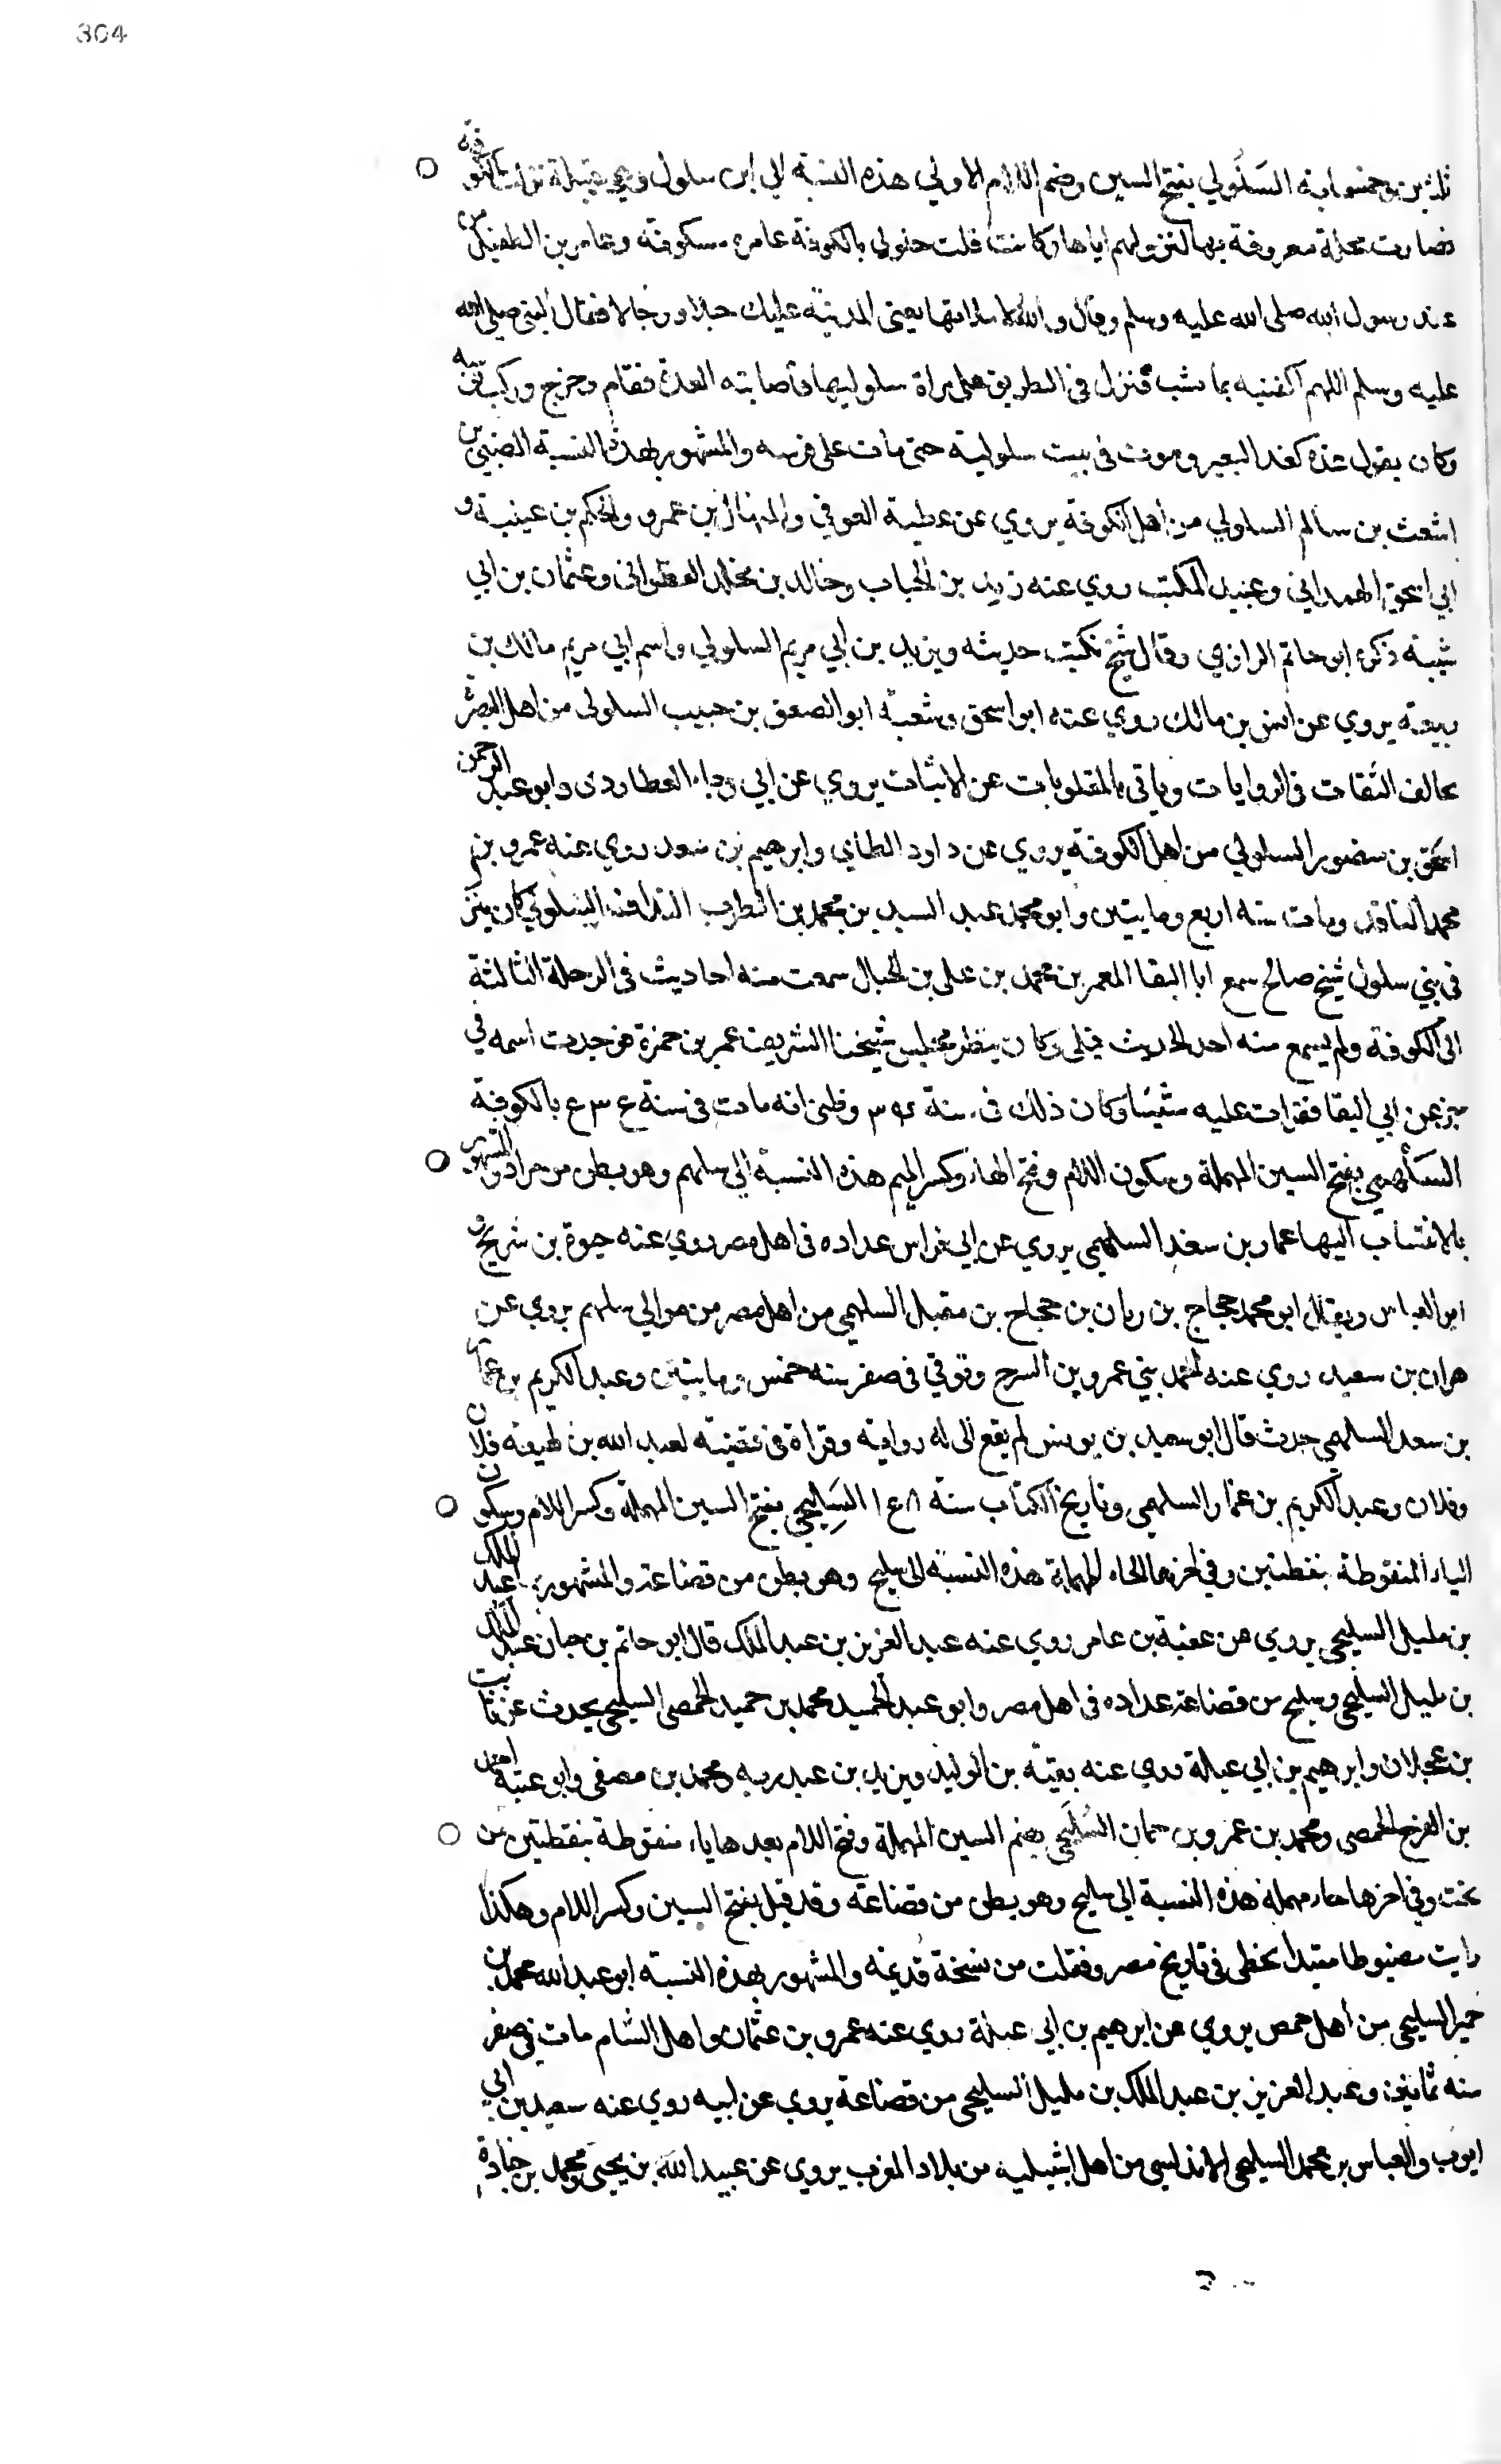 304
السَلُولي بفتح السين وضم اللام الاولي هذه النسبة الي ابن سلول وهي قبيلة نزلت الكوفة
فصارت محلة معروفة بها لنزولهم اياها وكانت دخولي بالكوفة عامرة مسكونة وعامر بن الطفيل من
عند رسول الله صلى الله عليه وسلم وقال والله لاملانها يعنى المدينة عليك خيلا ورجالا فقال النبي صلى الله
عليه وسلم اللهم اكفنيه بما شئت فنزل في الطريق على امراة سلولية فاصابته الغدة فقام وخرج وركب
وكان يقول غدة كغد البعير وموت في بيت سلولية حتى مات على فرسه والمشهور بهذه النسبة الضبي بن
اشعث بن سالم السلولي من اهل الكوفة يروي عن عطية العوفي والمنهال بن عمرو والحكم بن عيينة و
ابي اسحق الهمداني وعبيد المكتب روي عنه زيد بن الحباب وخالد بن مخلد القطواني وعثمان بن ابي
شيبة ذكره ابن حاتم الرازي وقال شيخ نكتب حديثه ويزيد بن ابي مريم السلولي واسم ابي مريم مالك بن
ربيعة يروي عن انس بن مالك روي عنه ابو اسحق وشعبة ابو الصعق بن حبيب السلولى من اهل البصرة
يخالف الثقات في الروايات وياتي بالمقلوبات عن الاثبات يروي عن ابي رجاء العطاردى وابو عبد الرحمن
اسحق بن منصور السلولي من اهل الكوفة يروي عن داود الطائي وابرهيم بن سعد روي عنه عمرو بن
محمد الناقد ومات سنة اربع ومايتين وابو محمد عبد السيد بن محمد بن السلولي كان ينزل
في بني سلول شيخ صالح سمع ابا البقا المعمر بن محمد بن على بن الحبال سمعت منه احاديث في الرحلة الثالثة
الى الكوفة ولم يسمع منه احد الحديث قبلى وكان ينظر مجلس شيخنا الشريف عمر بن حمزة فوجدت اسمه في
جزء عن ابي البقا فقرات عليه شيئا وكان ذلك في سنة وظنى انه مات في سنة بالكوفة
السَلْهمي بفتح السين المهملة وسكون اللام وفتح الهاء وكسر الميم هذه النسبة الي سلهم وهو بطن من مراد والمشهور
بالانتساب اليها عمار بن سعد السلهمي يروي عن ابي فراس عداده في اهل مصر روي عنه حيوة بن شريح و
ابو العباس ويقال ابو محمد حجاج بن ريان بن حجاج بن مقبل السلهمي من اهل مصر من موالي سلهم يروي عن
هران بن سعيد روي عنه احمد بن عمرو بن السرح وتوفي في صفر سنة خمس ومايتين وعبد الكريم بن عمار
بن سعد السلهمي حدث قال ابو سعيد بن يونس لم يقع الى له رواية وقراة في قضية لعبد الله بن لهيعة فلان
وفلان وعبد الكريم بن عمار السلهمي وتاريخ الكتاب سنة السَلِيحي بفتح السين المهملة وكسر اللام وسكون
الياء المنقوطة بنقطتين وفي اخرها الحاء المهملة هذه النسبة الى سليح وهو بطن من قضاعة والمشهور بها عبد الملك
بن مليل السليحي يروي عن عقبة بن عامر روي عنه عبد العزيز بن عبد الملك قال ابو حاتم بن حبان عبد الملك
بن مليل السليحي وسليح من قضاعة عداده في اهل مصر وابو عبد الحميد محمد بن حمير الحمصي السليحي يحدث عن ثابت
بن عجلان وابرهيم بن ابي عبلة روي عنه بقية بن الوليد ويزيد بن عبد ربه ومحمد بن مصفى وابو عتبة احمد
بن الفرج الحمصي ومحمد بن عمرو بن حمان السُلَيحي بضم السين المهملة وفتح اللام بعدها ياء منقوطة بنقطتين من
تحت وفي اخرها حاء مهملة هذه النسبة الي سليح وهو بطن من قضاعة وقد قيل بفتح السين وكسر اللام وهكذا
رايت مضبوطا مقيدا بخطى في تاريخ مصر ونقلت من نسخة قديمة والمشهور بهذه النسبة ابو عبد الله محمد بن
حمير السليحي من اهل حمص يروي عن ابرهيم بن ابي عبلة روي عنه عمرو بن عثمان واهل الشام مات في صفر
سنه ثمانين وعبد العزيز بن عبد الملك بن مليل السليحي من قضاعة يروي عن ابيه روي عنه سعيد بن ابي
ايوب والعباس بن محمد السليحي الاندلسي من اهل اشبيلية من بلاد المغرب يروي عن عبيد الله بن يحيى ومحمد بن جنادة